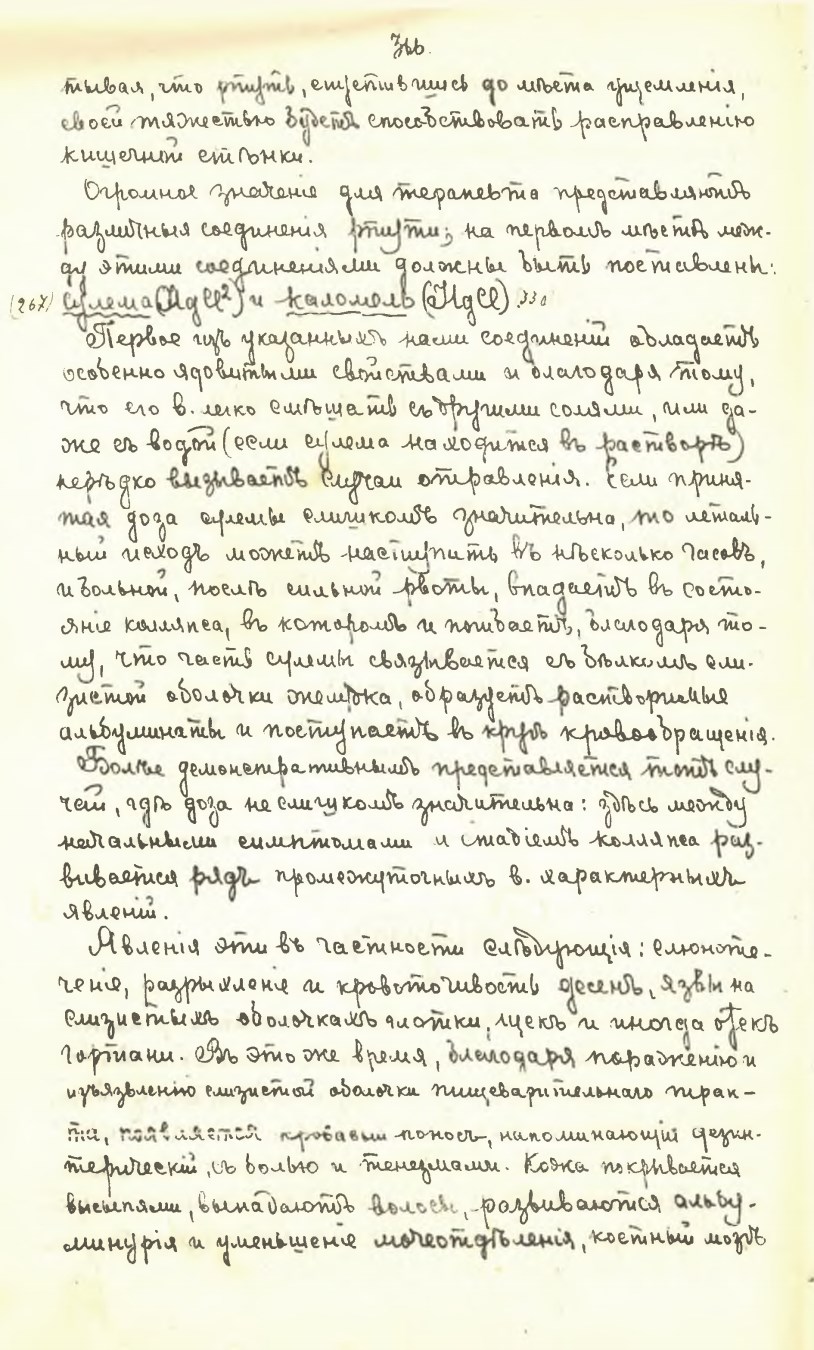 366.
тывая, что ртуть, спустившись до мѣста ущемленія,
своей тяжестью будетъ способствовать расправленію
кишечной стѣнки.
Огромное значеніе для терапевта представляютъ
различныя соединенія ртути; на первомъ мѣстѣ меж-
ду этими соединеніями должны быть поставлены:
(267) сулема (HgCl²) и каломель (HgCl) 330
Первое изъ указанныхъ нами соединеній обладаетъ
особенно ядовитыми свойствами и благодаря тому,
что его в. легко смѣшать съ другими солями, или да-
же съ водой (если сулема находится въ растворѣ)
нерѣдко вызываетъ случаи отравленія. Если приня-
тая доза сулемы слишкомъ значительна, то леталь-
ный исходъ можетъ наступить въ нѣсколько часовъ,
и больной, послѣ сильной рвоты, впадаетъ въ состо-
яніе коляпса, въ которомъ и погибаетъ, благодаря то-
му, что часть сулемы связывается съ бѣлкомъ сли-
зистой оболочки желудка, образуетъ растворимые
альбуминаты и поступаетъ въ кругъ кровообращенія.
Болѣе демонстративнымъ представляется тотъ слу-
чай, гдѣ доза не слишкомъ значительна: здѣсь между
начальными симптомами и стадіемъ колляпса раз-
вивается рядъ промежуточныхъ в. характерныхъ
явленій.
Явленія эти въ частности слѣдующія: слюноте-
ченіе, разрыхленіе и кровоточивость десенъ, язвы на
слизистыхъ оболочкахъ глотки, щекъ и иногда отекъ
гортани. Въ это же время, благодаря пораженію и
изъязвленію слизистой оболочки пищеварительнаго трак-
та, появляется кровавый поносъ, напоминающій дезин-
терическій, съ болью и тенезмами. Кожа покрывается
высыпями, выпадаютъ волосы, развиваются альбу-
минурія и уменьшеніе мочеотдѣленія, костный мозгъ